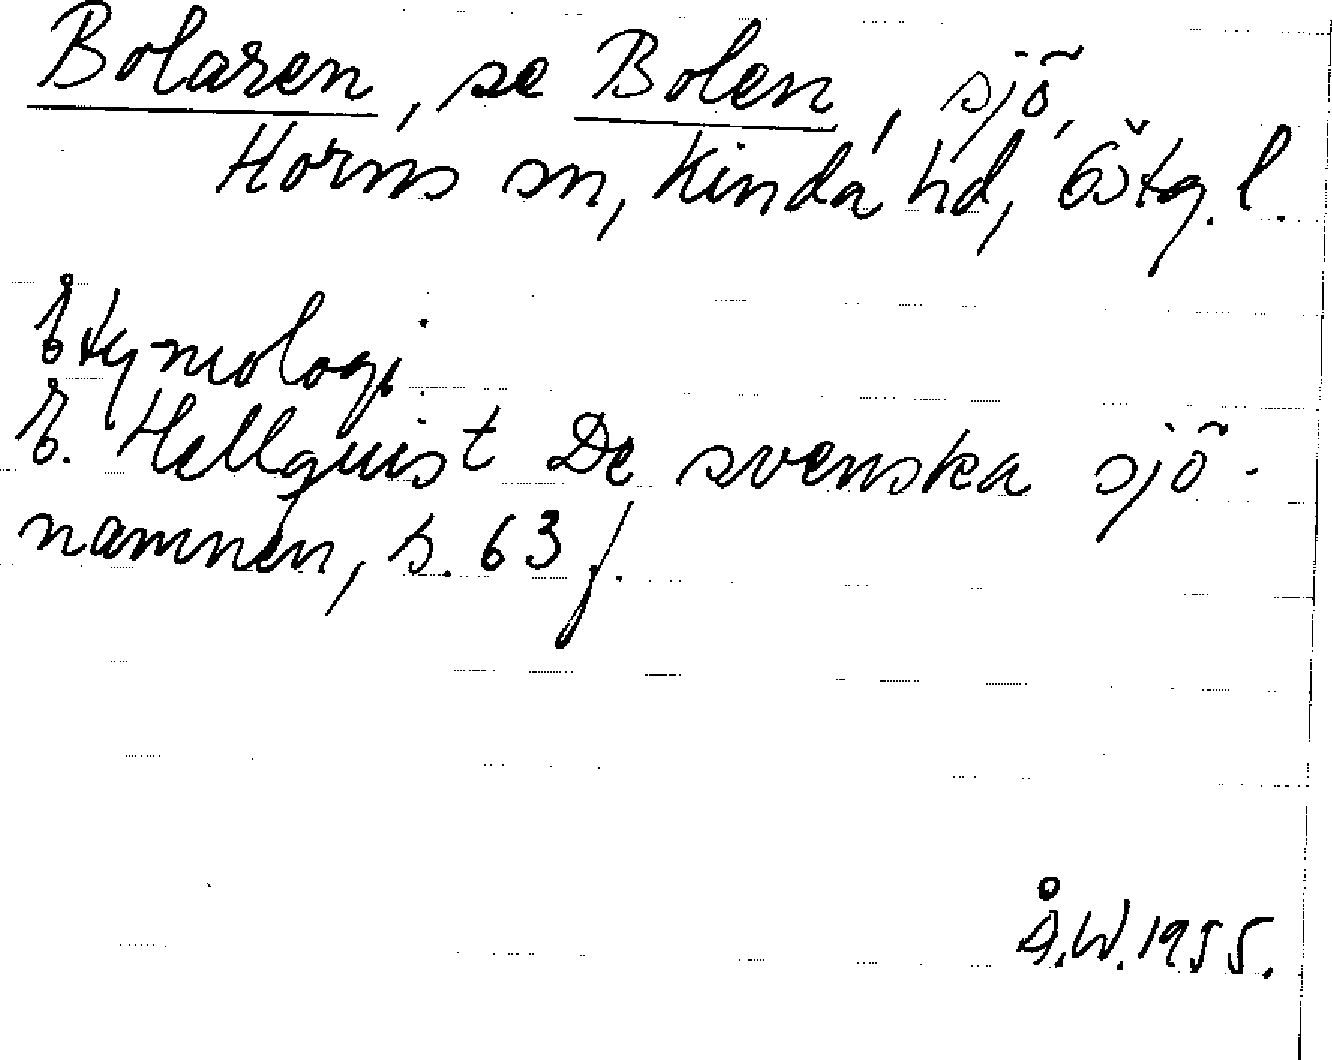 Bolaren, se Bolen, sjö,
Horns sn, Kinda hd, Östg. l.
Etymologi.
E. Hellquist De svenska sjö-
namnen, s. 63 f.
Å.W. 1955.